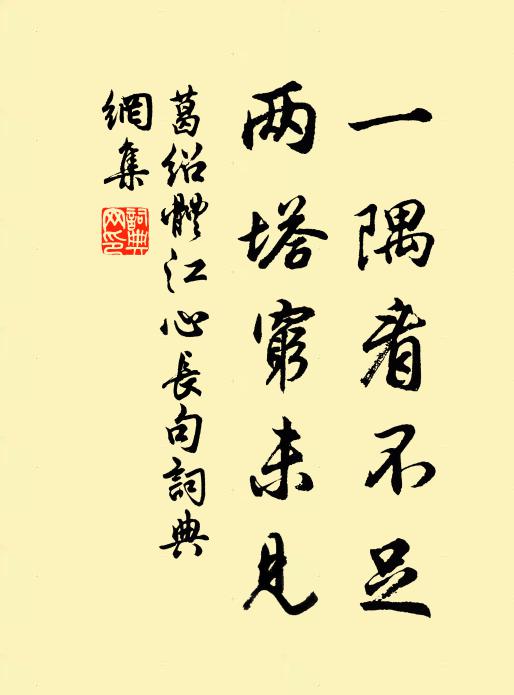 一隅看不足
两塔窮未見
葛紹體江心長句詞典
網集
詞典
网印